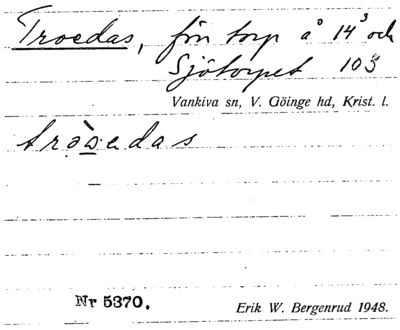 Troedas, fdn torp å 14³ och
Sjötorpet 10³
Vankiva sn, V. Göinge hd, Krist. l.
tròwedas
Nr 5370.
Erik W. Bergenrud 1948.